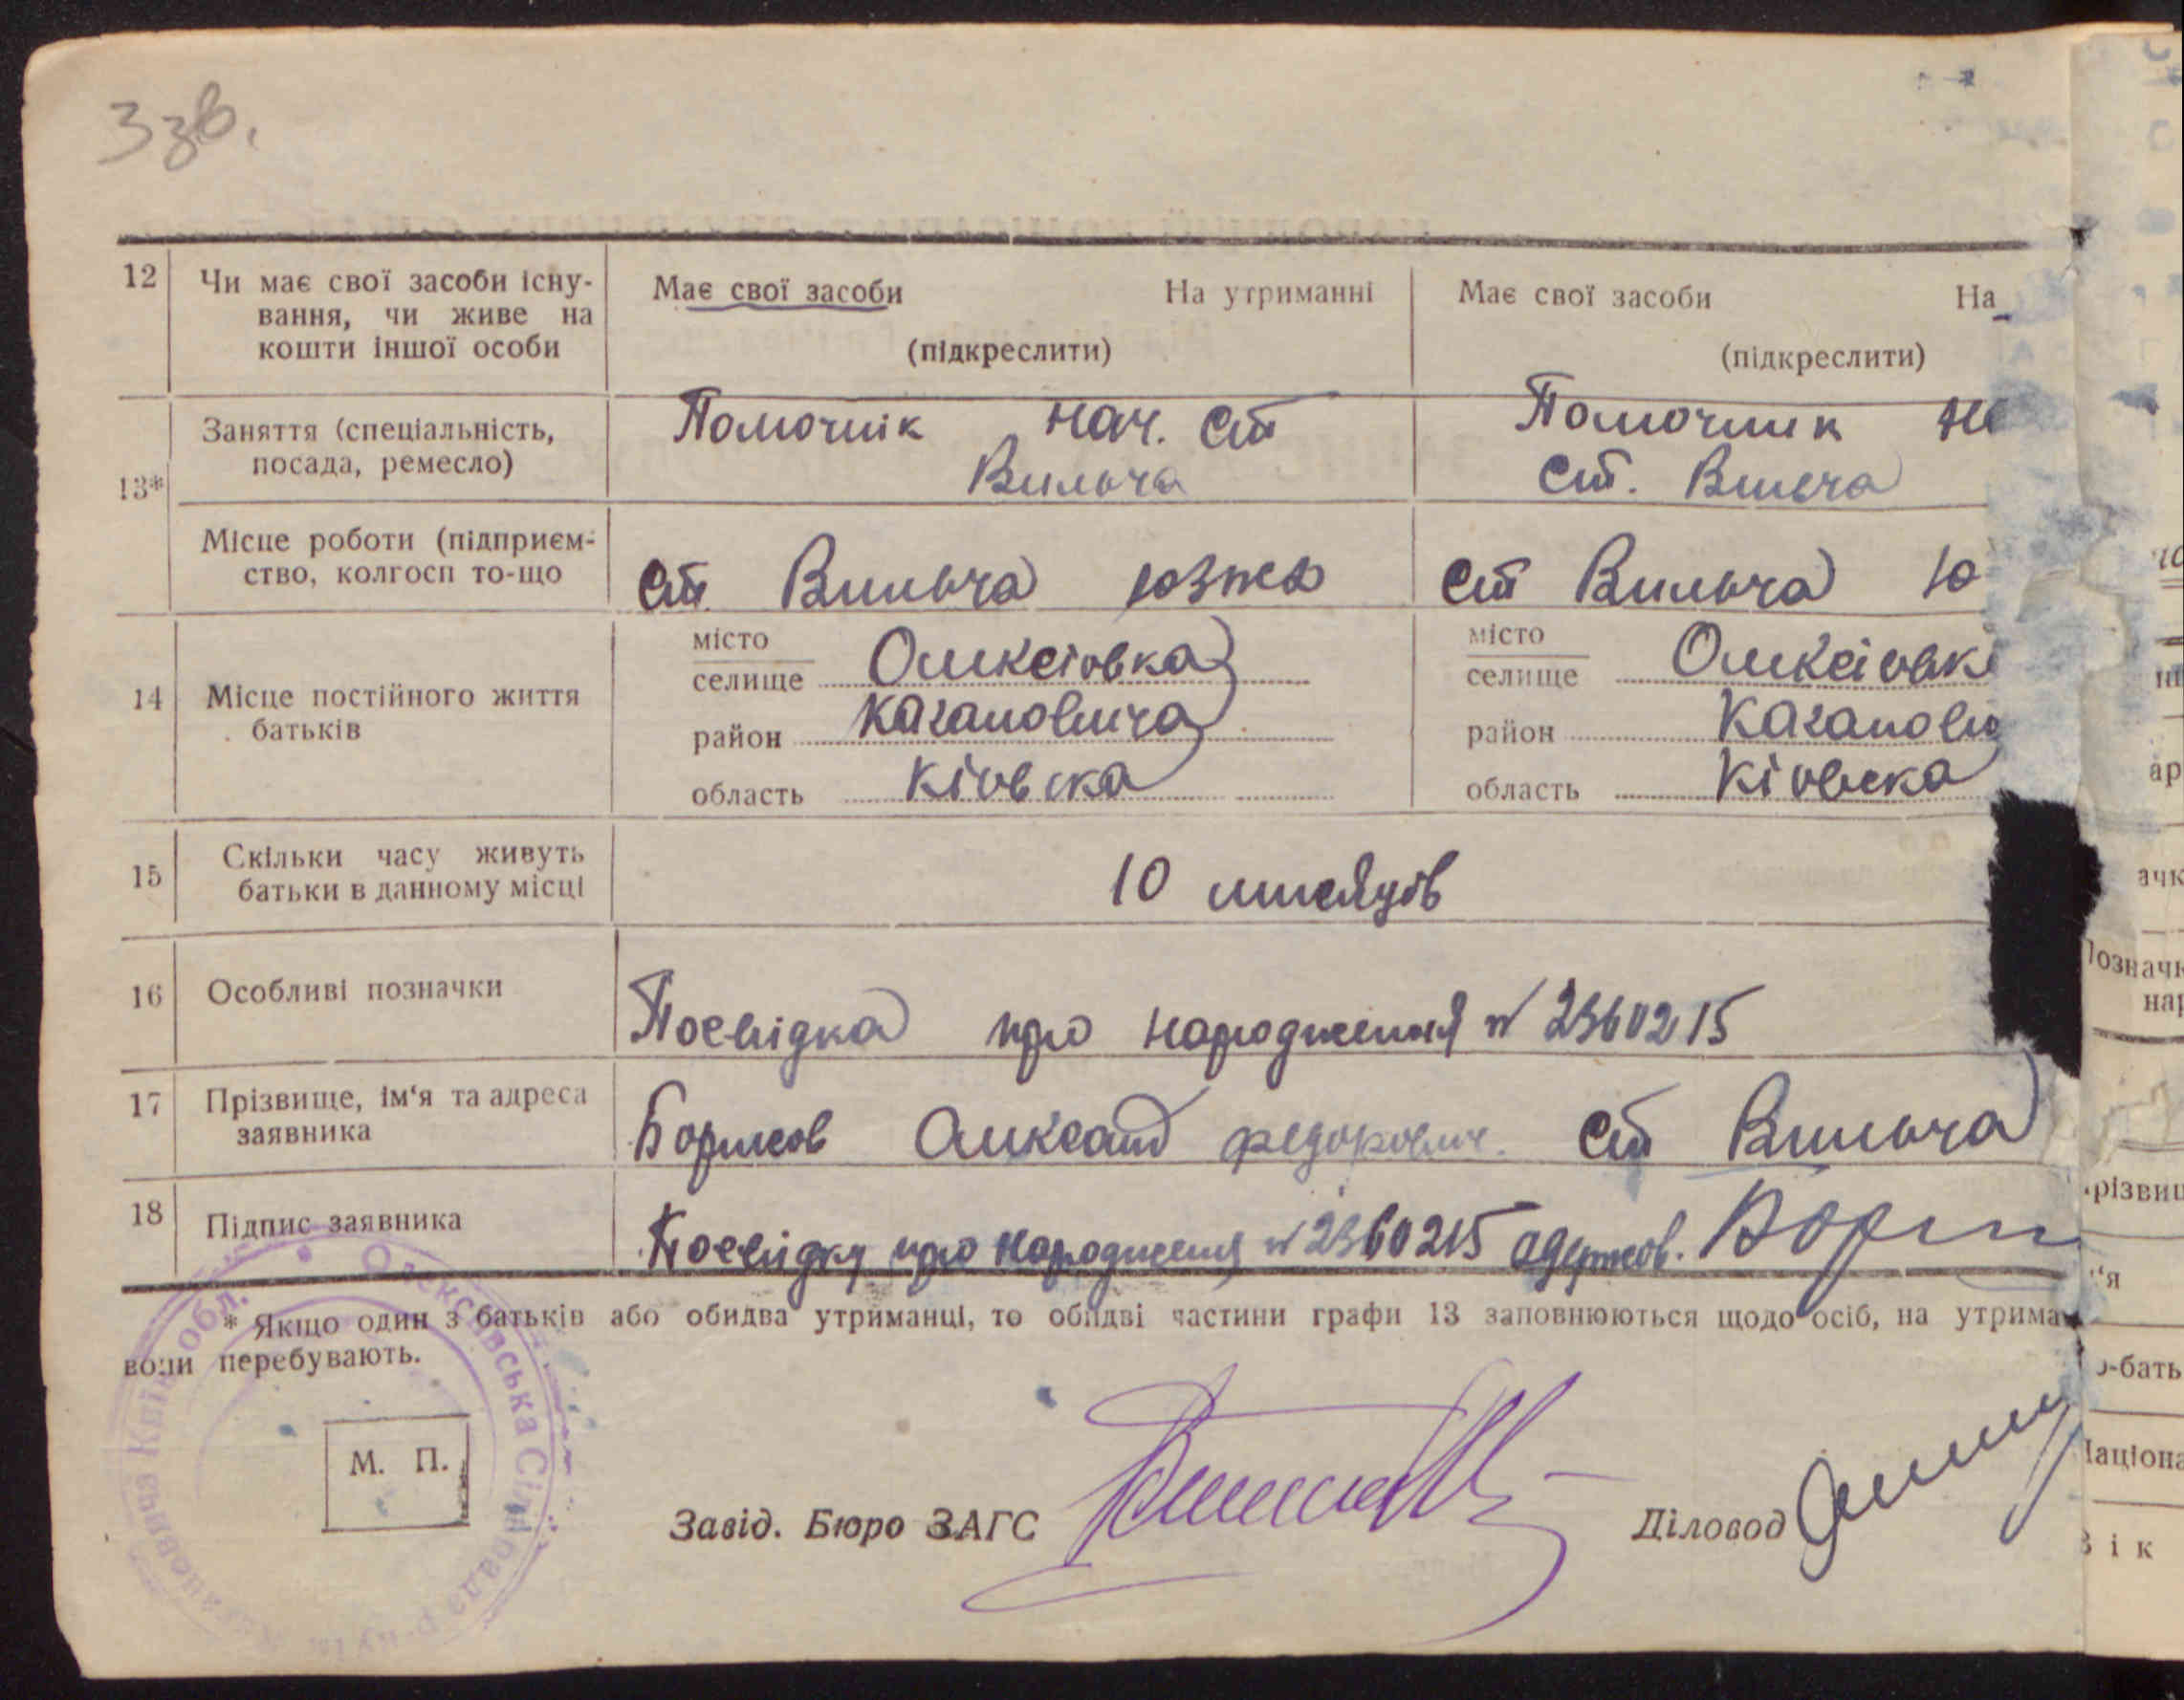 3 зв.
12 Чи має свої засоби існу-
вання, чи живе на
кошти іншої особи
Має свої засоби На утриманні
(підкреслити)
Має свої засоби На
(підкреслити)
13*
Заняття (спеціальність,
посада, ремесло)
Помочнік нач. ст
Вильча
Помочник на
ст. Вильча
Місце роботи (підприєм-
ство, колгосп то-що
ст. Вильча юзжд
ст Вильча Ю
14 Місце постійного життя
батьків
місто
селище Оликсіовка
район Кагановича
область Кіовска
місто
селище Оликсіовк
район Каганови
область Кіовска
15 Скільки часу живуть
батьки в данному місці
10 мисяців
16 Особливі позначки
Посвідка про народження № 2360215
17 Прізвище, ім‘я та адреса
заявника
Борисов Олександ Федорович. ст Вильча
18 Підпис заявника
Посвідку про народження № 2360215 одержов. Борис
* Якщо один з батьків або обидва утриманці, то обидві частини графи 13 заповнюються щодо осіб, на утрима
вони перебувають.
М. П.
Олексіївська Сільрада
Кагановича Київ. обл.
Завід. Бюро ЗАГС
Діловод
ачк
Познач
нар
різвищ
‘я
о-бать
Націона
Вік